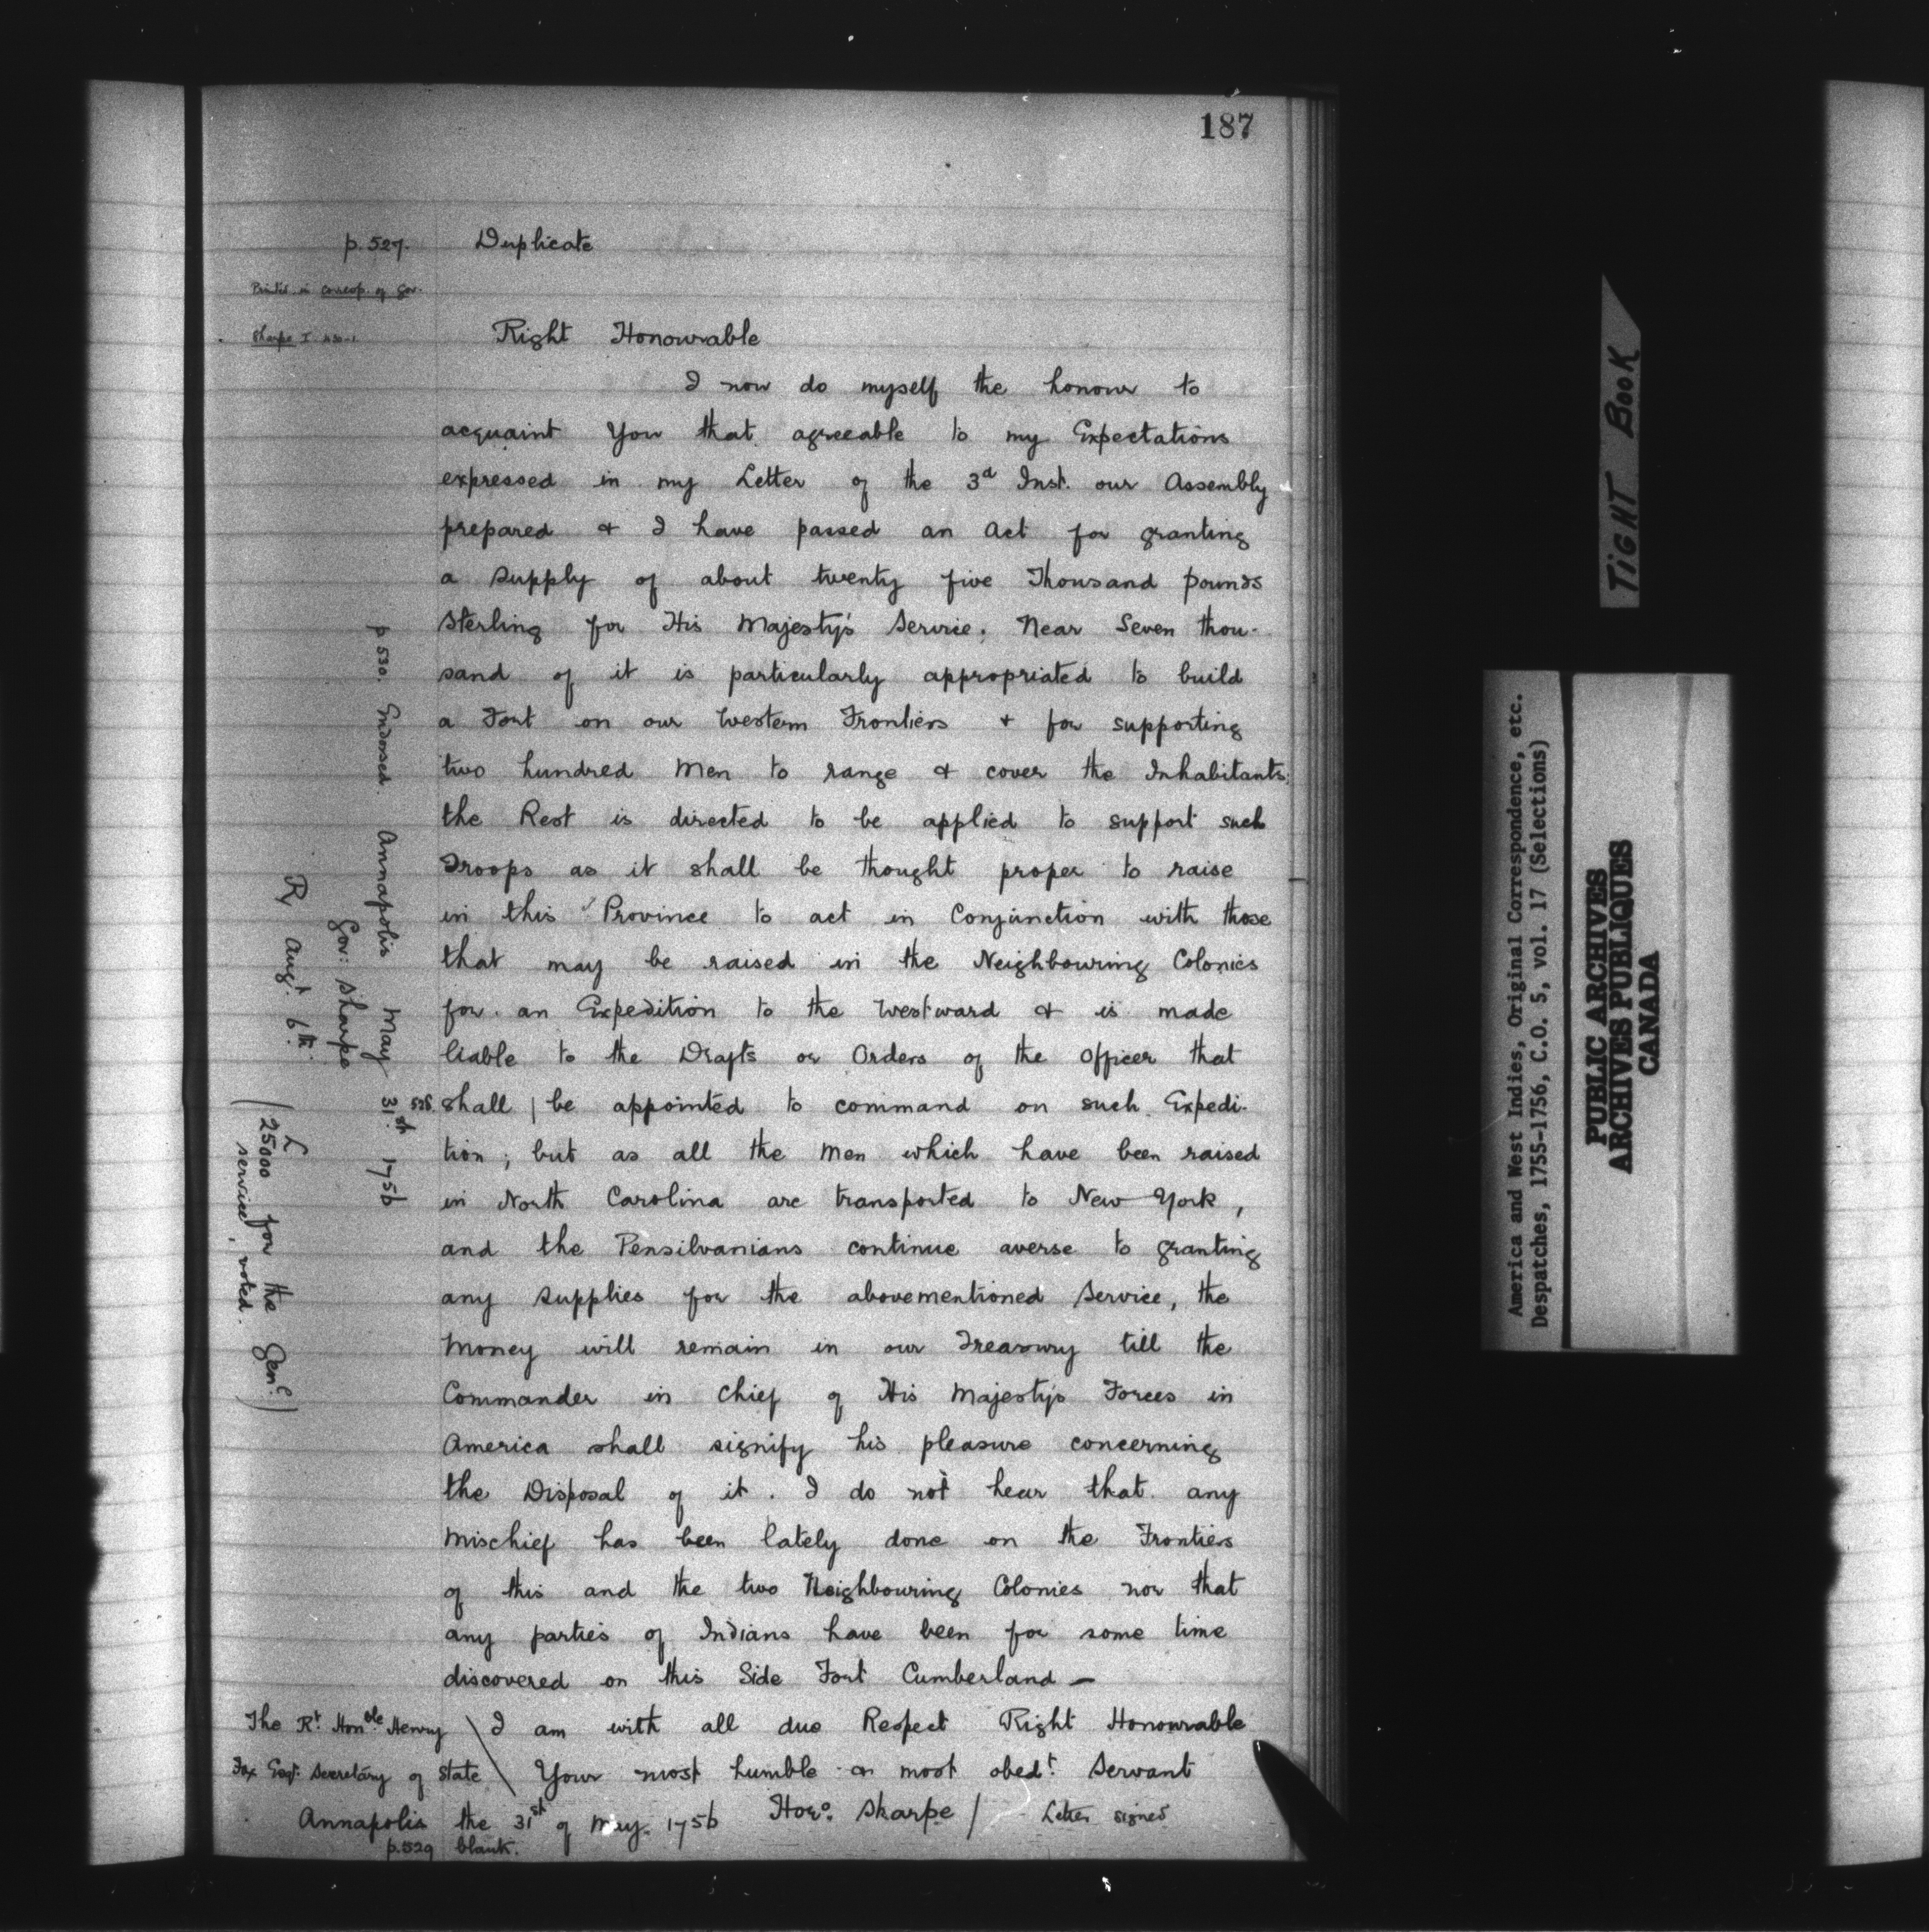 187
p. 527. Duplicate
Printed in corresp. of Gov.
Sharpe I
Right Honourable
I now do myself the honour to
acquaint You that agreeable to my Expectations
expressed in my Letter of the 3d Inst. our Assembly
prepared & I have passed an Act for granting
a supply of about twenty five Thousand pounds
Sterling for His Majesty's Service; Near Seven thou-
sand of it is particularly appropriated to build
a Fort on our Western Frontiers & for supporting
two hundred Men to range & cover the Inhabitants;
the Rest is directed to be applied to support such
Troops as it shall be thought proper to raise
in this Province to act in Conjunction with those
that may be raised in the Neighbouring Colonies
for an Expedition to the Westward & is made
liable to the Drafts or Orders of the Officer that
528. shall | be appointed to command on such Expedi-
tion; but as all the Men which have been raised
in North Carolina are transported to New York,
and the Pensilvanians continue averse to granting
any supplies for the abovementioned Service, the
Money will remain in our Treasury till the
Commander in Chief of His Majesty's Forces in
America shall signify his pleasure concerning
the Disposal of it. I do not hear that any
Mischief has been lately done on the Frontiers
of this and the two Neighbouring Colonies nor that
any parties of Indians have been for some time
discovered on this Side Fort Cumberland —
The Rt. Honble. Henry \ I am with all due Respect Right Honourable
Fox Esqr. Secretary of State \ Your most humble & most obedt. Servant
Annapolis the 31st of May. 1756 Horo. Sharpe / Letter signed
p. 529 blank.
p 530. Endorsed. Annapolis May 31st. 1756
Gov: Sharpe
R Augt. 6th.
(£25000 for the Genl.
service, voted.)
TIGHT BOOK
America and West Indies, Original Correspondence, etc.
Despatches, 1755-1756, C.O. 5, vol. 17 (Selections)
PUBLIC ARCHIVES
ARCHIVES PUBLIQUES
CANADA